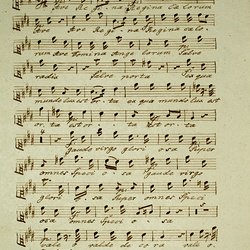 Ave Re gi na Regina Cae lorum
Ave Ave Re gi na Regina caelo
rum Ave Domina Ange lorum Salve
radix Salve porta Ex qua
mundo lux est or ta ex qua mundo lux est
or ta est or ta est or ta
gaude virgo glori osa Super
omnes speci o sa gaude virgo
glori osa Super omnes Speci
osa omnes Speci o sa
vale o valde de co ra vale o